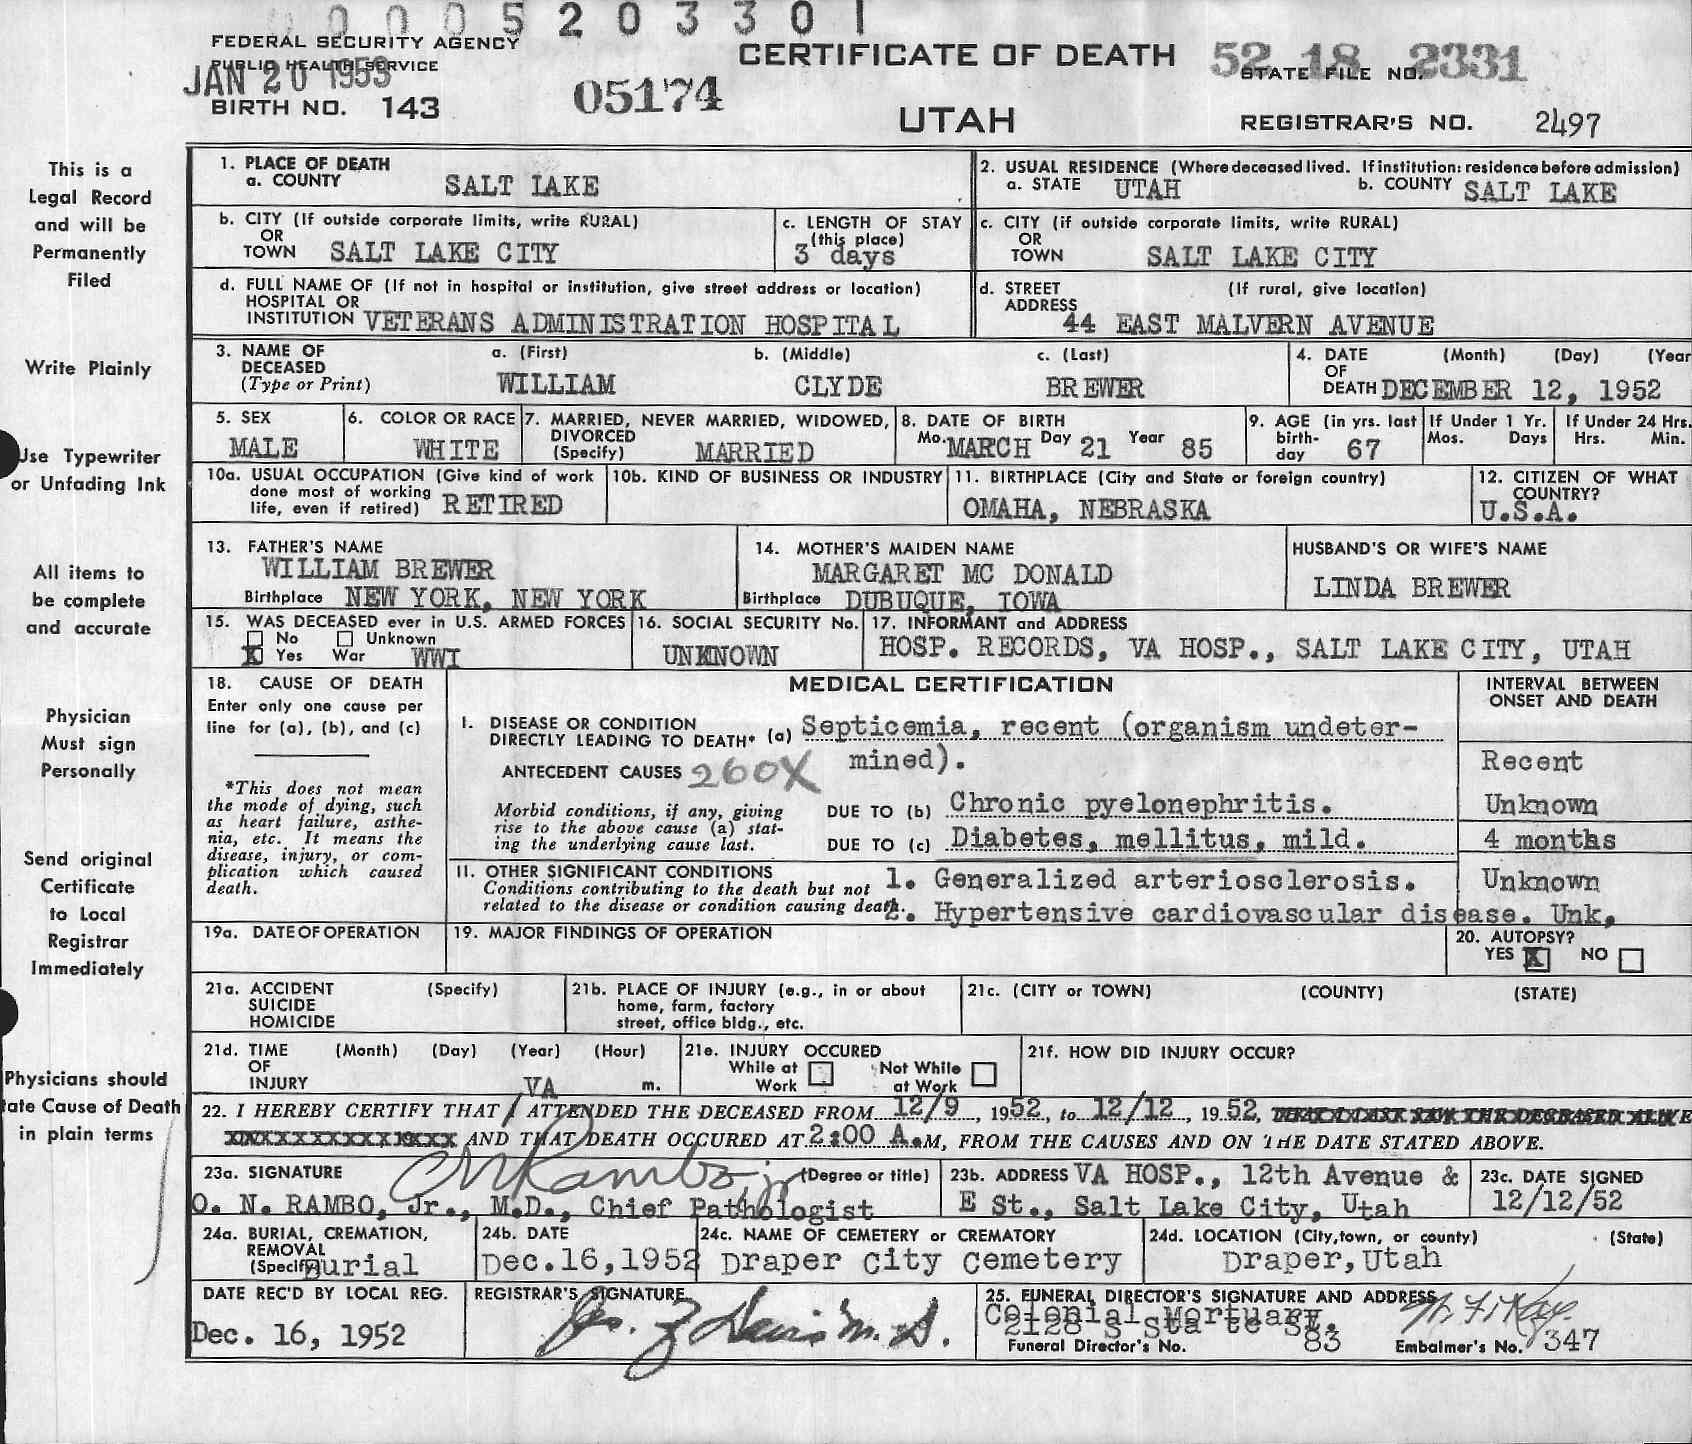 0 0 0 5 2 0 3 3 0 1
FEDERAL SECURITY AGENCY
PUBLIC HEALTH SERVICE
JAN 20 1953
BIRTH NO. 143
05174
CERTIFICATE OF DEATH
UTAH
52 18 2331
STATE FILE NO.
REGISTRAR'S NO. 2497
This is a
Legal Record
and will be
Permanently
Filed
Write Plainly
Use Typewriter
or Unfading Ink
All items to
be complete
and accurate
Physician
Must sign
Personally
Send original
Certificate
to Local
Registrar
Immediately
Physicians should
ate Cause of Death
in plain terms
1. PLACE OF DEATH
a. COUNTY SALT LAKE
2. USUAL RESIDENCE (Where deceased lived. If institution: residence before admission)
a. STATE UTAH b. COUNTY SALT LAKE
b. CITY (If outside corporate limits, write RURAL)
OR
TOWN SALT LAKE CITY
c. LENGTH OF STAY
(this place)
3 days
c. CITY (if outside corporate limits, write RURAL)
OR
TOWN SALT LAKE CITY
d. FULL NAME OF (If not in hospital or institution, give street address or location)
HOSPITAL OR
INSTITUTION VETERANS ADMINISTRATION HOSPITAL
d. STREET (If rural, give location)
ADDRESS
44 EAST MALVERN AVENUE
3. NAME OF a. (First) b. (Middle) c. (Last)
DECEASED
(Type or Print) WILLIAM CLYDE BREWER
4. DATE (Month) (Day) (Year
OF
DEATH DECEMBER 12, 1952
5. SEX
MALE
6. COLOR OR RACE
WHITE
7. MARRIED, NEVER MARRIED, WIDOWED,
DIVORCED
(Specify) MARRIED
8. DATE OF BIRTH
Mo. MARCH Day 21 Year 85
9. AGE (in yrs. last
birth-
day 67
If Under 1 Yr.
Mos. Days
If Under 24 Hrs.
Hrs. Min.
10a. USUAL OCCUPATION (Give kind of work
done most of working
life, even if retired) RETIRED
10b. KIND OF BUSINESS OR INDUSTRY
11. BIRTHPLACE (City and State or foreign country)
OMAHA, NEBRASKA
12. CITIZEN OF WHAT
COUNTRY?
U.S.A.
13. FATHER'S NAME
WILLIAM BREWER
Birthplace NEW YORK, NEW YORK
14. MOTHER'S MAIDEN NAME
MARGARET MC DONALD
Birthplace DUBUQUE, IOWA
HUSBAND'S OR WIFE'S NAME
LINDA BREWER
15. WAS DECEASED ever in U.S. ARMED FORCES
No Unknown
X Yes War WWI
16. SOCIAL SECURITY No.
UNKNOWN
17. INFORMANT and ADDRESS
HOSP. RECORDS, VA HOSP., SALT LAKE CITY, UTAH
18. CAUSE OF DEATH
Enter only one cause per
line for (a), (b), and (c)
*This does not mean
the mode of dying, such
as heart failure, asthe-
nia, etc. It means the
disease, injury, or com-
plication which caused
death.
MEDICAL CERTIFICATION
INTERVAL BETWEEN
ONSET AND DEATH
I. DISEASE OR CONDITION
DIRECTLY LEADING TO DEATH* (a) Septicemia, recent (organism undeter-
mined). Recent
ANTECEDENT CAUSES 260X
Morbid conditions, if any, giving
rise to the above cause (a) stat-
ing the underlying cause last.
DUE TO (b) Chronic pyelonephritis. Unknown
DUE TO (c) Diabetes, mellitus, mild. 4 months
II. OTHER SIGNIFICANT CONDITIONS
Conditions contributing to the death but not
related to the disease or condition causing death.
1. Generalized arteriosclerosis. Unknown
2. Hypertensive cardiovascular disease. Unk.
19a. DATE OF OPERATION
19. MAJOR FINDINGS OF OPERATION
20. AUTOPSY?
YES X NO
21a. ACCIDENT (Specify)
SUICIDE
HOMICIDE
21b. PLACE OF INJURY (e.g., in or about
home, farm, factory
street, office bldg., etc.
21c. (CITY or TOWN) (COUNTY) (STATE)
21d. TIME (Month) (Day) (Year) (Hour)
OF
INJURY m.
21e. INJURY OCCURED
While at Work
Not While at Work
21f. HOW DID INJURY OCCUR?
VA
22. I HEREBY CERTIFY THAT I ATTENDED THE DECEASED FROM 12/9, 1952, to 12/12, 1952, THAT I LAST SAW THE DECEASED ALIVE
XXXXXXXXXXX19XXX AND THAT DEATH OCCURED AT 2:00 A.M, FROM THE CAUSES AND ON THE DATE STATED ABOVE.
23a. SIGNATURE ON Rambo jr (Degree or title)
O. N. RAMBO, Jr., M.D., Chief Pathologist
23b. ADDRESS VA HOSP., 12th Avenue &
E St., Salt Lake City, Utah
23c. DATE SIGNED
12/12/52
24a. BURIAL, CREMATION,
REMOVAL
(Specify) Burial
24b. DATE
Dec.16,1952
24c. NAME OF CEMETERY or CREMATORY
Draper City Cemetery
24d. LOCATION (City, town, or county) (State)
Draper, Utah
DATE REC'D BY LOCAL REG.
Dec. 16, 1952
REGISTRAR'S SIGNATURE
25. FUNERAL DIRECTOR'S SIGNATURE AND ADDRESS
Colonial Mortuary.
2128 S State St.
Funeral Director's No. 83
Embalmer's No. 347